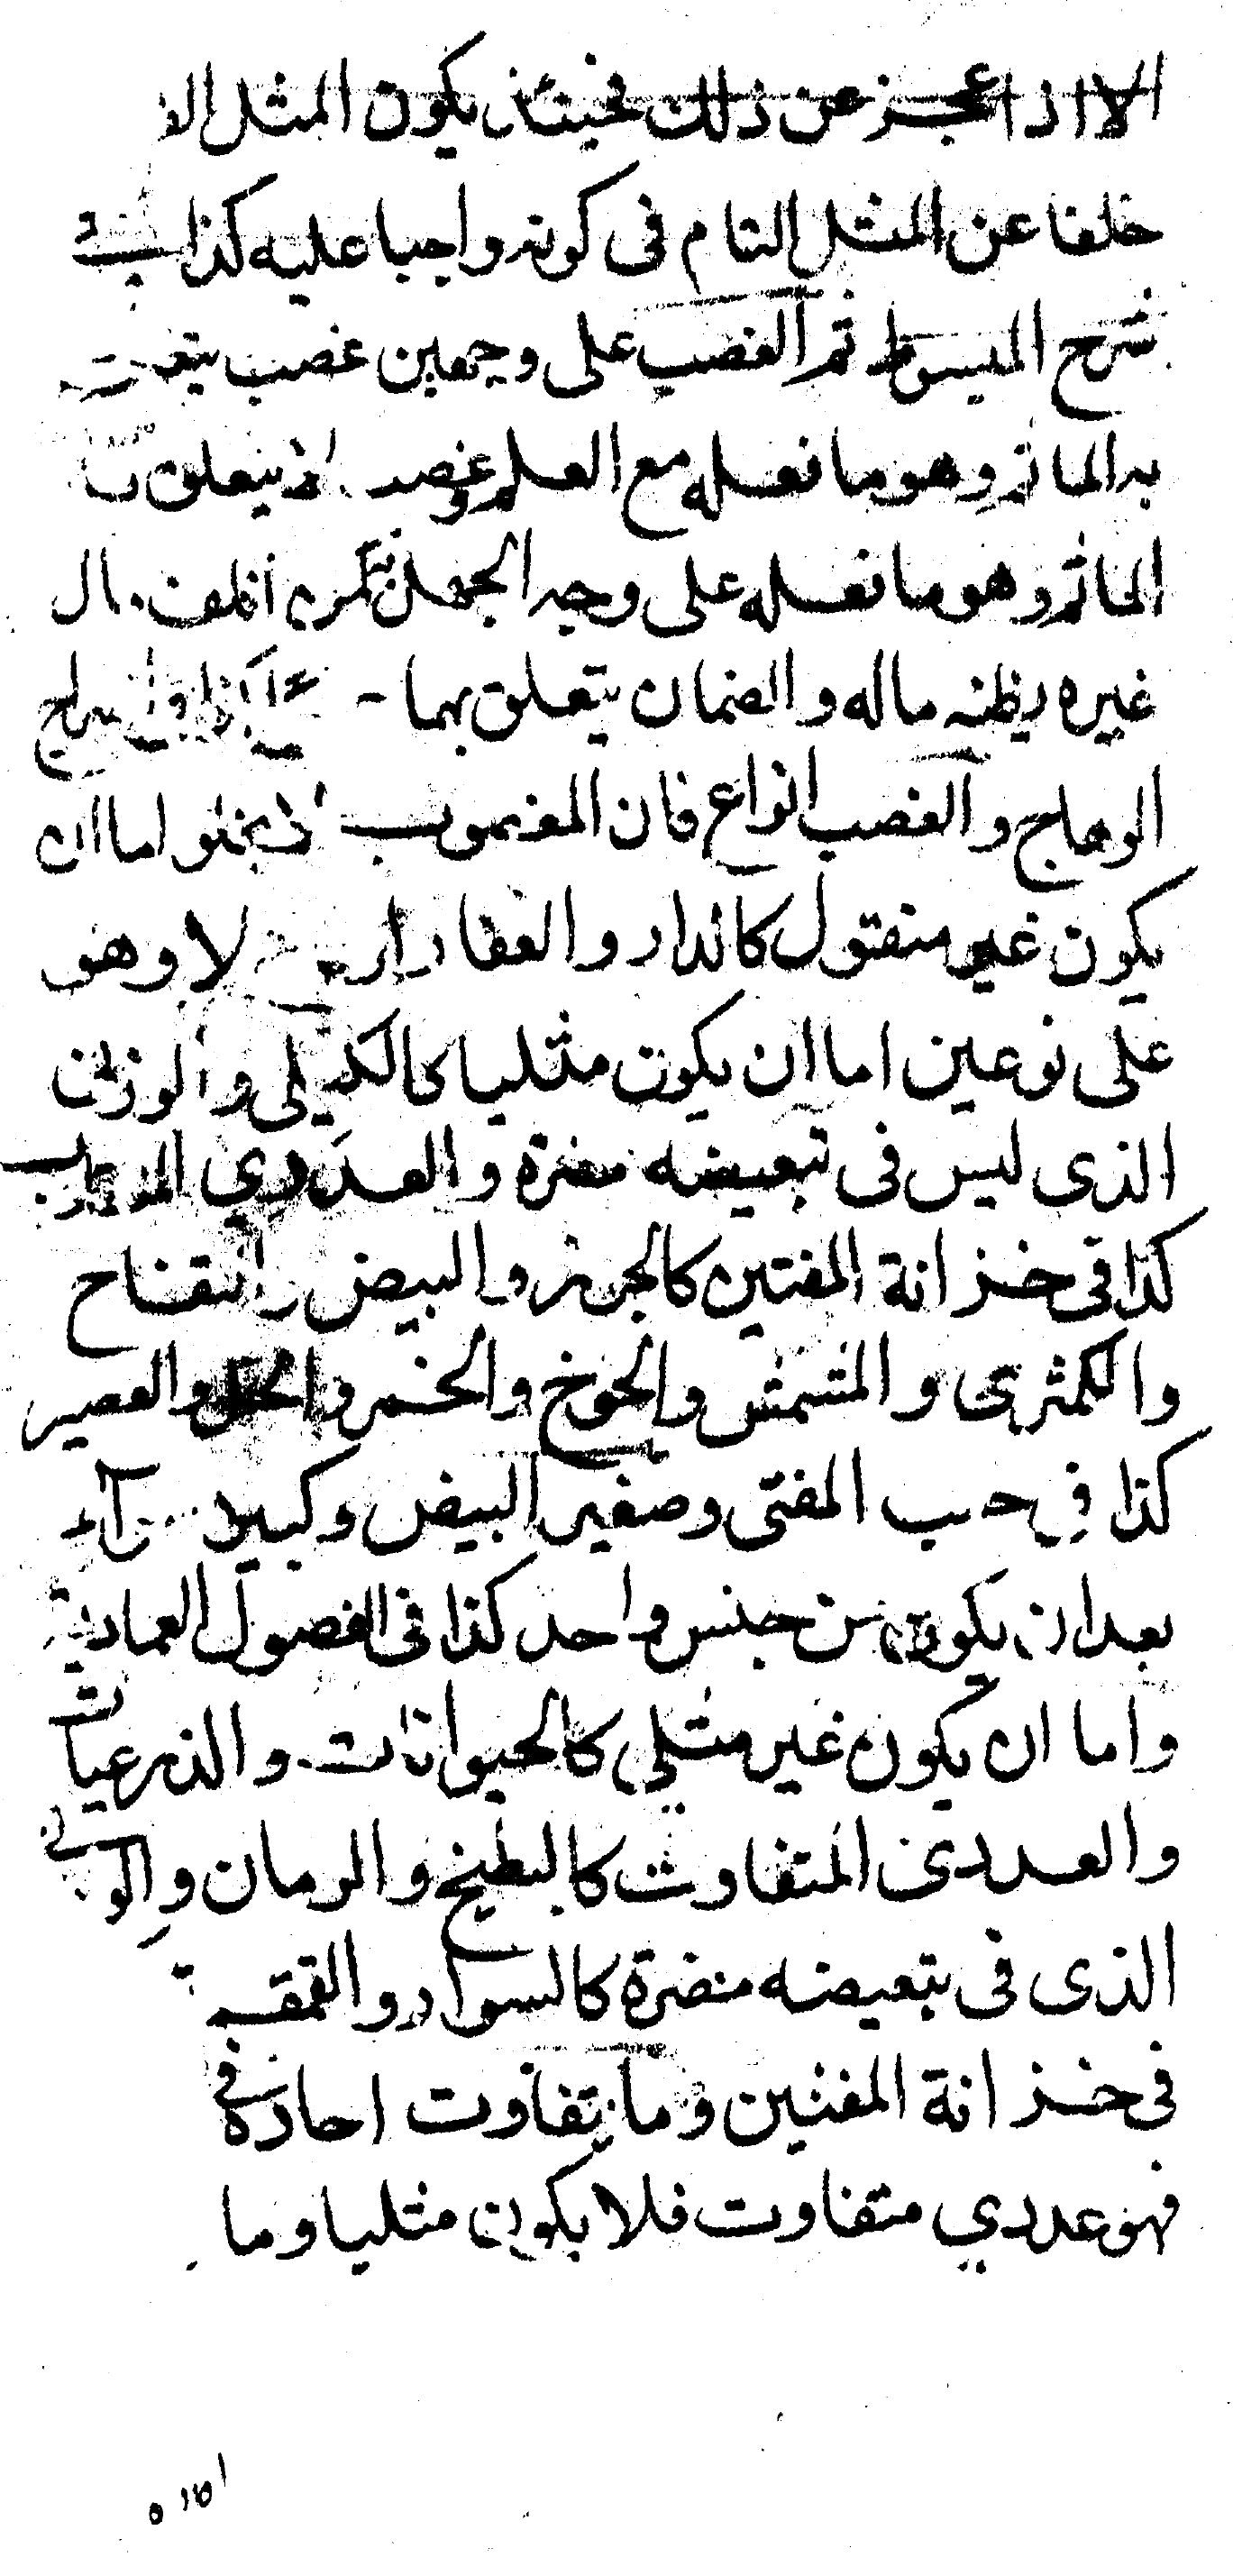 الا اذا عجز عن ذلك فحينئذ يكون المثل
خلفا عن المثل التام فى كونه واجبا عليه كذا فى
شرح المبسوط ثم الغصب على وجهين غصب يتعلق
به الماثم وهو ما فعله مع العلم وغصب لا يتعلق به
الماثم وهو ما فعله على وجه الجهل كمن اتلف مال
غيره يظنه ماله والضمان يتعلق بهما كذا فى السراج
الوهاج والغصب انواع فان المغصوب لا يخلو اما ان
يكون غير منقول كالدار والعقار او لا وهو
على نوعين اما ان يكون مثليا كالكيلى والوزنى
الذى ليس فى تبعيضه مضرة والعددي المتقارب
كذا فى خزانة المفتين كالجوز والبيض والتفاح
والكمثرى والمشمش والخوخ والخمر والخل والعصير
كذا فى المفتى وصغير البيض وكبيره سواء
بعد ان يكون من جنس واحد كذا فى الفصول العمادية
واما ان يكون غير مثلي كالحيوانات والذرعيات
والعددى المتفاوت كالبطيخ والرمان والوزنى
الذى فى تبعيضه مضرة كالسوار والقمقمة
فى خزانة المفتين وما يتفاوت احاده فى
فهو عددي متفاوت فلا يكون مثليا وما